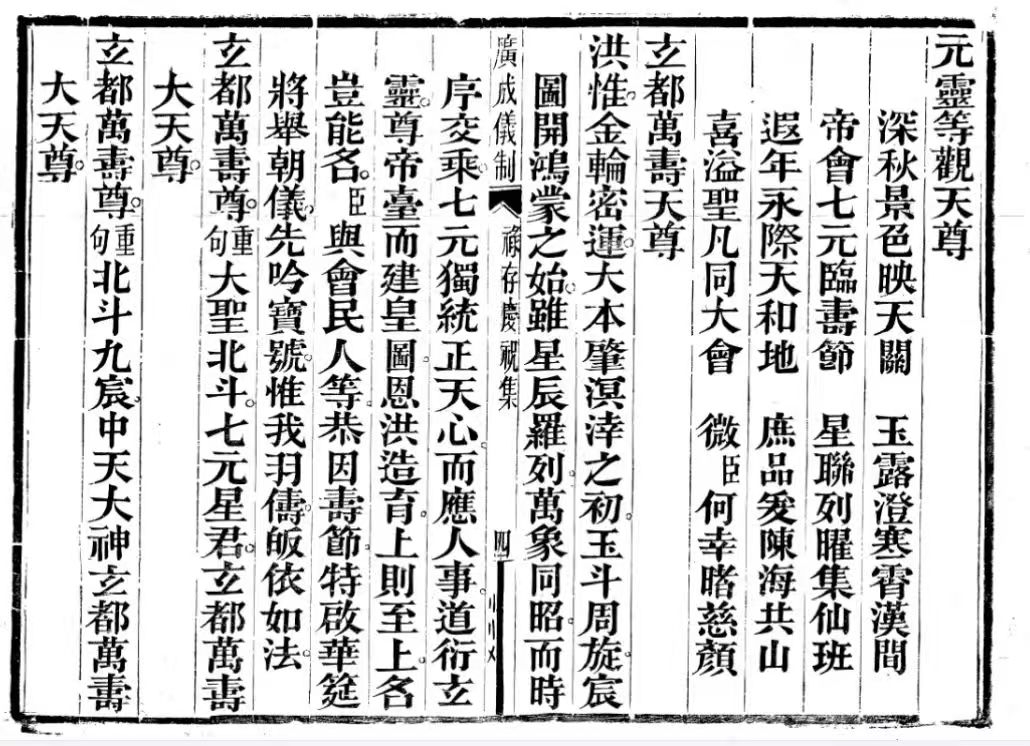 元靈等觀天尊
深秋景色映天關　玉露澄寒霄漢間
帝會七元臨壽節　星聯列曜集仙班
遐年永際天和地　庶品爰陳海共山
喜溢聖凡同大會　微臣何幸睹慈顏
玄都萬壽天尊
洪惟金輪密運。大本肇溟涬之初。玉斗周旋。宸
圖開鴻蒙之始。雖星辰羅列。萬象同昭。而時
序交乘。七元獨統正天心。而應人事。道衍玄
靈。尊帝臺而建皇圖。恩洪造育。上則至上。名
豈能名。臣與會民人等。恭因壽節。特啟華筵
將舉朝儀。先吟寶號。惟我羽儔。皈依如法。
玄都萬壽尊。重句大聖北斗。七元星君。玄都萬壽
大天尊。
玄都萬壽尊。重句北斗九宸。中天大神玄都萬壽
大天尊。
廣成儀制
祿存慶祝集
四